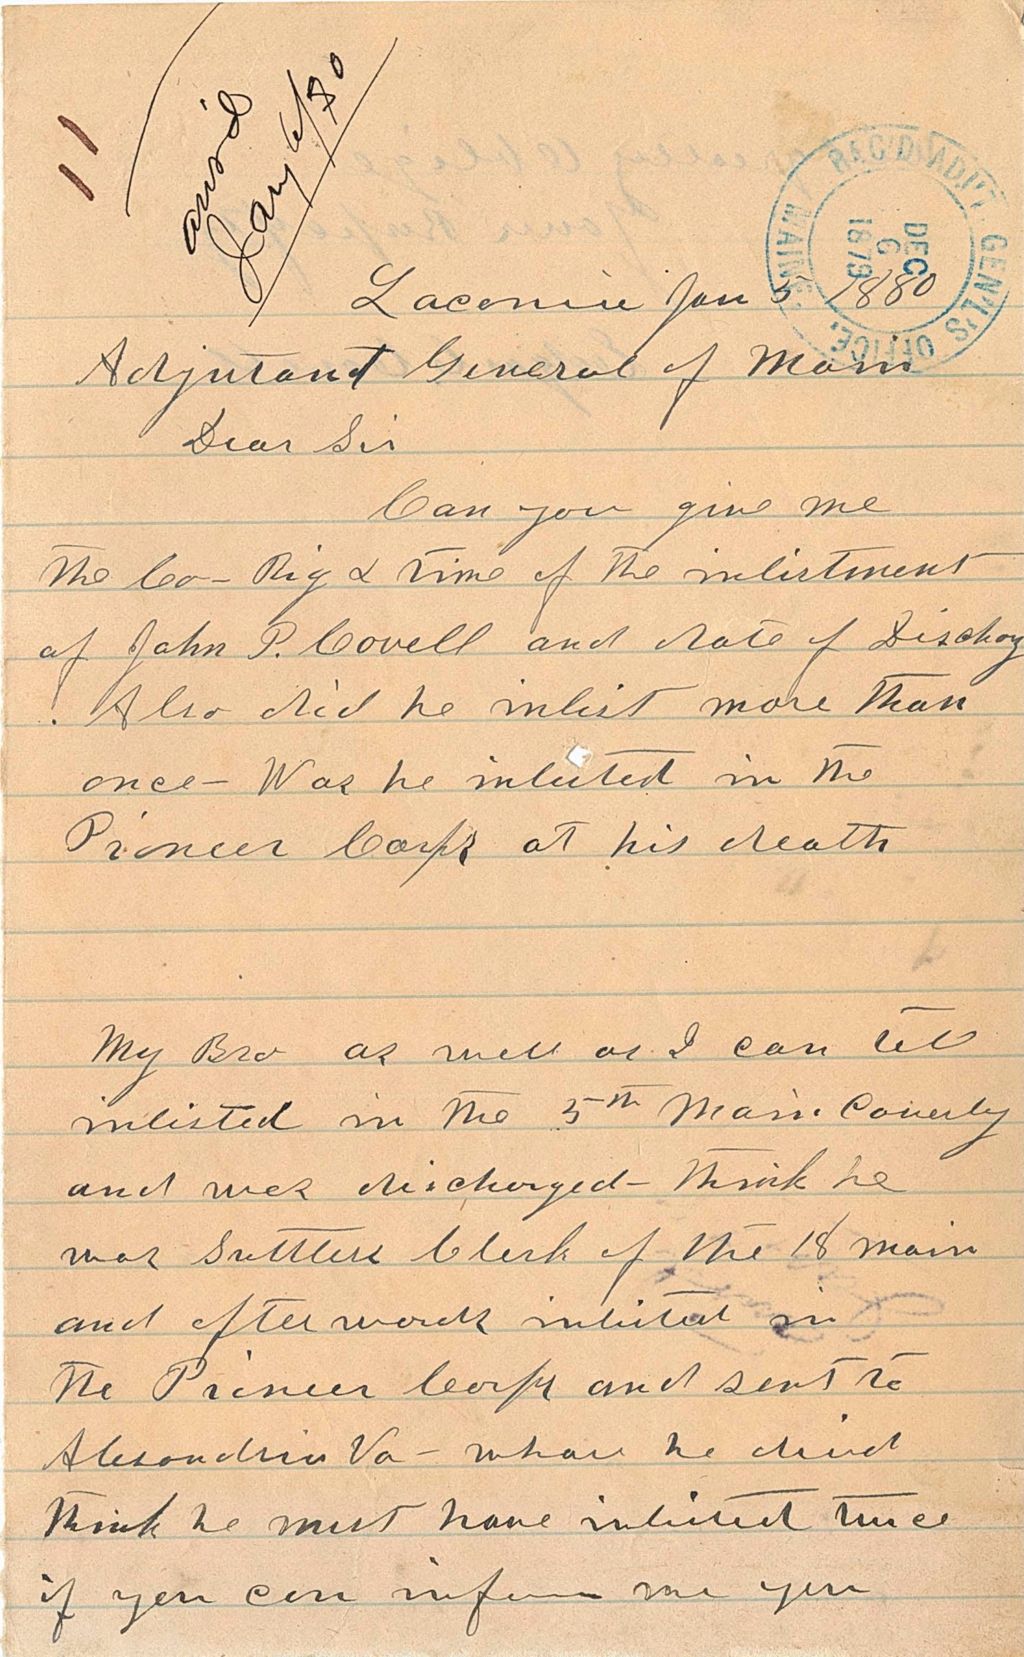 11
ans'd
Jany 6/80
REC'D ADJ'T. GEN'L'S OFFICE, MAINE.
DEC
6
1879
Laconia Jan 5 1880
Adjutant General of Main
Dear Sir
Can you give me
the Co - Rig & time of the inlistment
of John P. Covell and date of Dischag
. Also did he inlist more than
once - Was he inlisted in the
Pioneer Corps at his death
My Bro as well as I can tell
inlisted in the 5th Main Caverly
and was discharged - think he
was Suttlers Clerk of the 18 Main
and afterwards inlisted in
the Pioneer Corps and sent to
Alexandria Va - whare he died
think he must have inlisted twice
if you can inform me you